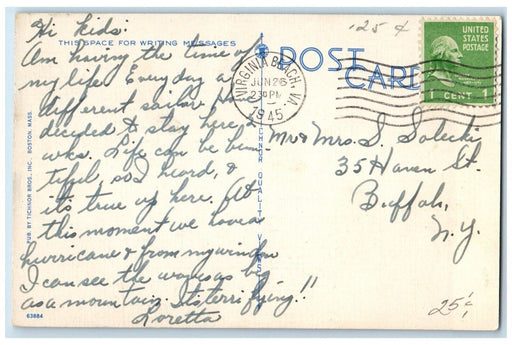 Hi Kids:
THIS SPACE FOR WRITING MESSAGES
Am having the time of
my life. Everyday a
different sailor
decided to stay here 2
wks. Life can be beau
tiful so I heard, &
it's true up here. At
this moment we have a
hurricane & from my window
I can see the waves as big
as a mountain. Its terrifying!!
Loretta
63884
PUB. BY TICHNOR BROS., INC., BOSTON, MASS.
TICHNOR QUALITY VIEWS
POST
CARD
.25¢
VIRGINIA BEACH, VA.
JUN 26
230 PM
1945
UNITED
STATES
POSTAGE
1 CENT 1
Mr & Mrs. S. Solecki
35 Haven St.
Buffalo,
N.Y.
25¢